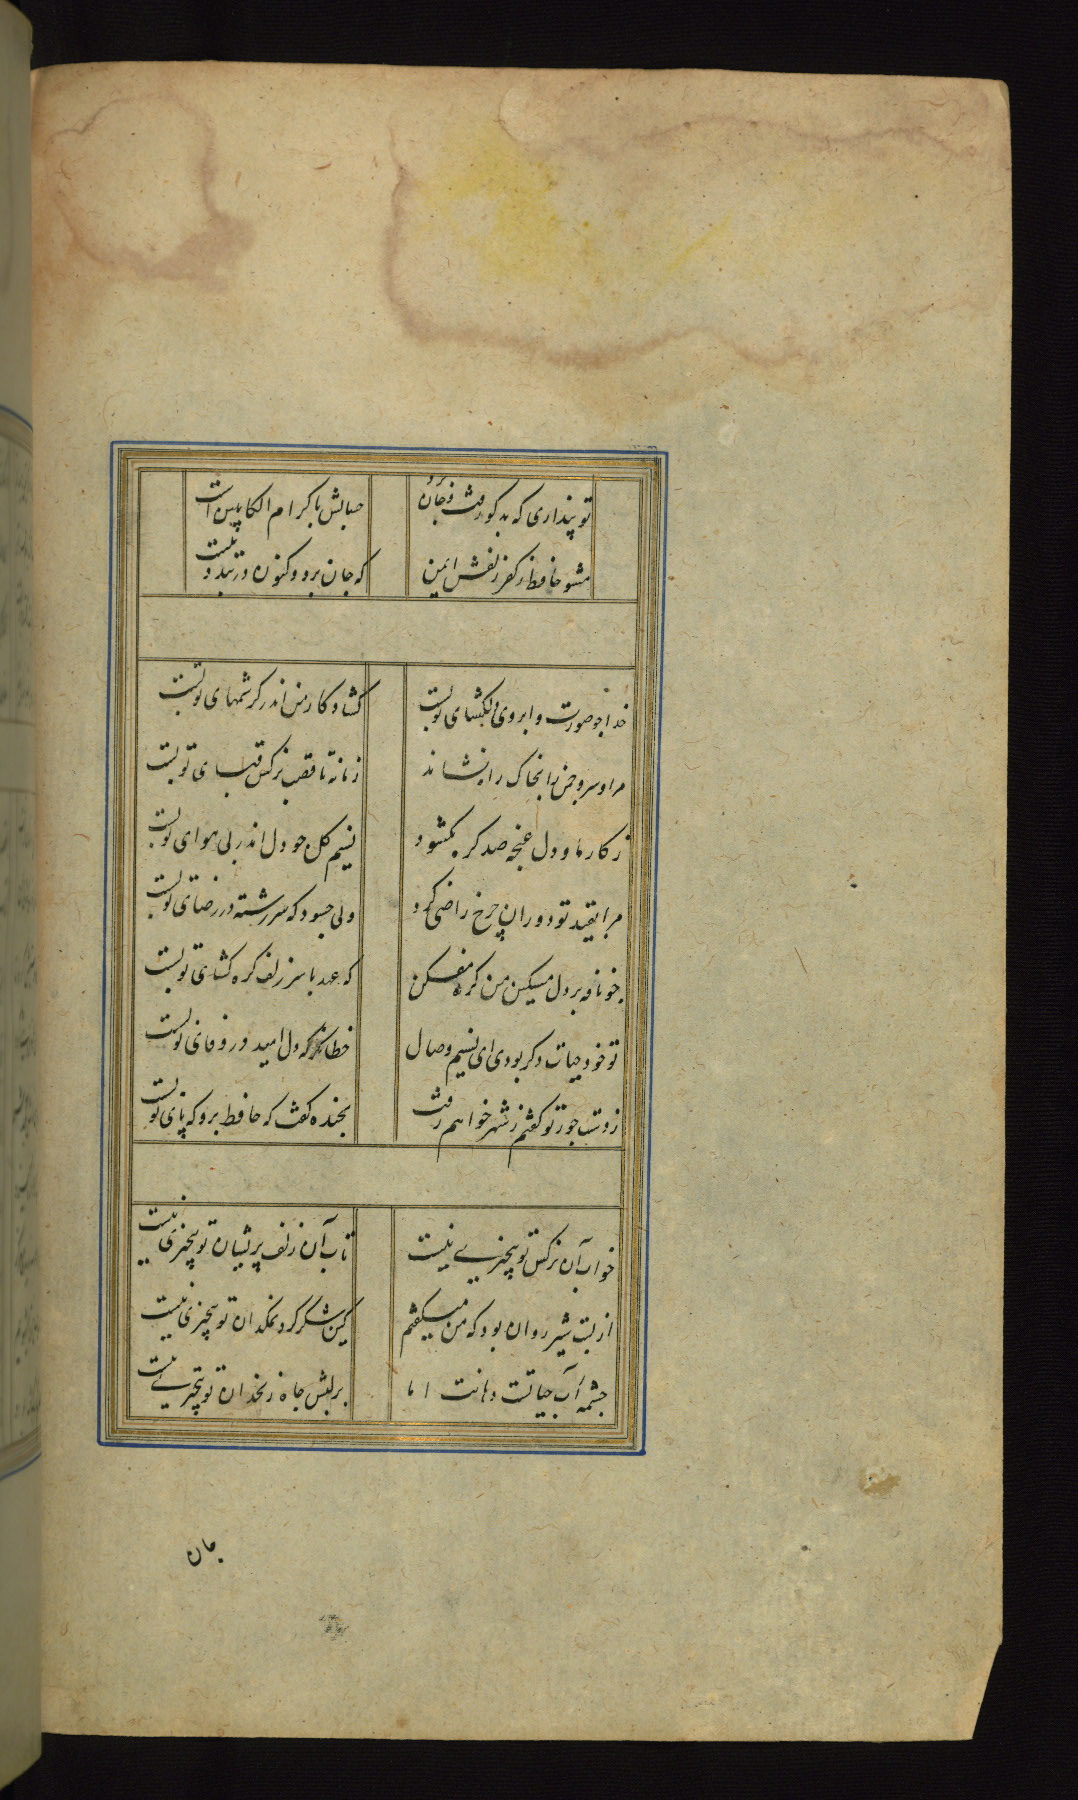 تو پنداری که بدگو رفت و جان برد حسابش با کرام الکاتبین است
مشو حافظ ز کفر زلفش ایمن که جان برد و کنون در بند دینست
خدا چو صورت و ابروی دلکشای تو بست کشاد کار من اندر کرشمهای تو بست
مرا و سرو چمن را بخاک راه نشاند زمانه تا قصب نرکس قبای تو بست
ز کار ما و دل غنچه صد کره بکشود نسیم کل چو دل اندر پی هوای تو بست
مرا بقید تو دوران چرخ راضی کرد ولی چسود که سررشته در رضای تو بست
چو نافه بر دل مسکین من کره مفکن که عهد با سر زلف کره کشای تو بست
تو خود حیات دکر بودی ای نسیم وصال خطا نکر که دل امید در وفای تو بست
ز دست جور تو کفتم ز شهر خواهم رفت بخنده کفت که حافظ برو که پای تو بست
خواب آن نرکس تو بیچیزی نیست تاب آن زلف پریشان تو بیچیزی نیست
از لبت شیر روان بود که من میکفتم کین شکر کرد نمکدان تو بیچیزی نیست
چشمه آب حیاتست دهانت اما بر لبش چاه زنخدان تو بیچیزی نیست
جان